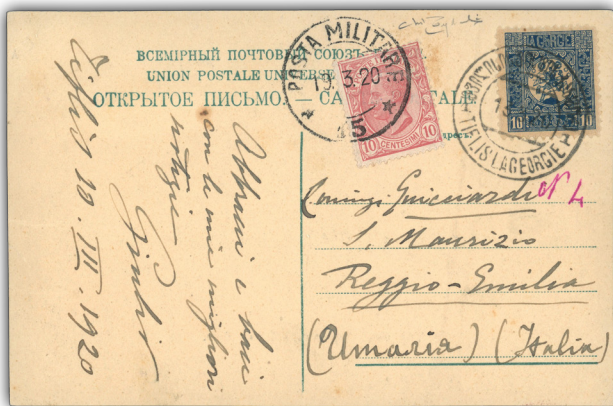 ВСЕМІРНЫЙ ПОЧТОВЫЙ СОЮЗЪ
UNION POSTALE UNIVERSE
ОТКРЫТОЕ ПИСЬМО. — CA TALE
POSTA MILITARE
19.3.20
15
10 CENTESIMI 10
LA GEORGIE
10 10
TIFLIS LA GEORGIE
Tiflis 19. III. 1920
Abbracci e baci
con le mie migliori
notizie
Giulio
Guicciardi No 4
S. Maurizio
Reggio-Emilia
(Umaria) (Italia)